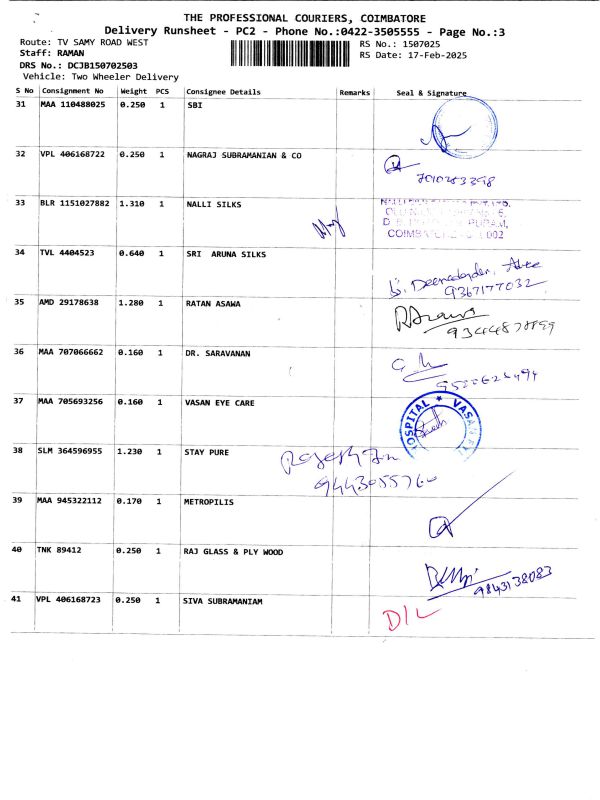 THE PROFESSIONAL COURIERS, COIMBATORE
Delivery Runsheet - PC2 - Phone No.:0422-3505555 - Page No.:3
Route: TV SAMY ROAD WEST
RS No.: 1507025
Staff: RAMAN
RS Date: 17-Feb-2025
DRS No.: DCJB150702503
Vehicle: Two Wheeler Delivery
S No Consignment No Weight PCS Consignee Details Remarks Seal & Signature
31 MAA 110488025 0.250 1 SBI
32 VPL 406168722 0.250 1 NAGRAJ SUBRAMANIAN & CO
7010283398
33 BLR 1151027882 1.310 1 NALLI SILKS
COIMB 002
34 TVL 4404523 0.640 1 SRI ARUNA SILKS
9367177032
35 AMD 29178638 1.280 1 RATAN ASAWA
RAsawa
36 MAA 707066662 0.160 1 DR. SARAVANAN
37 MAA 705693256 0.160 1 VASAN EYE CARE
HOSPITAL * VASAN EYE
38 SLM 364596955 1.230 1 STAY PURE
9443055760
39 MAA 945322112 0.170 1 METROPILIS
40 TNK 89412 0.250 1 RAJ GLASS & PLY WOOD
9843138083
41 VPL 406168723 0.250 1 SIVA SUBRAMANIAM
D/L